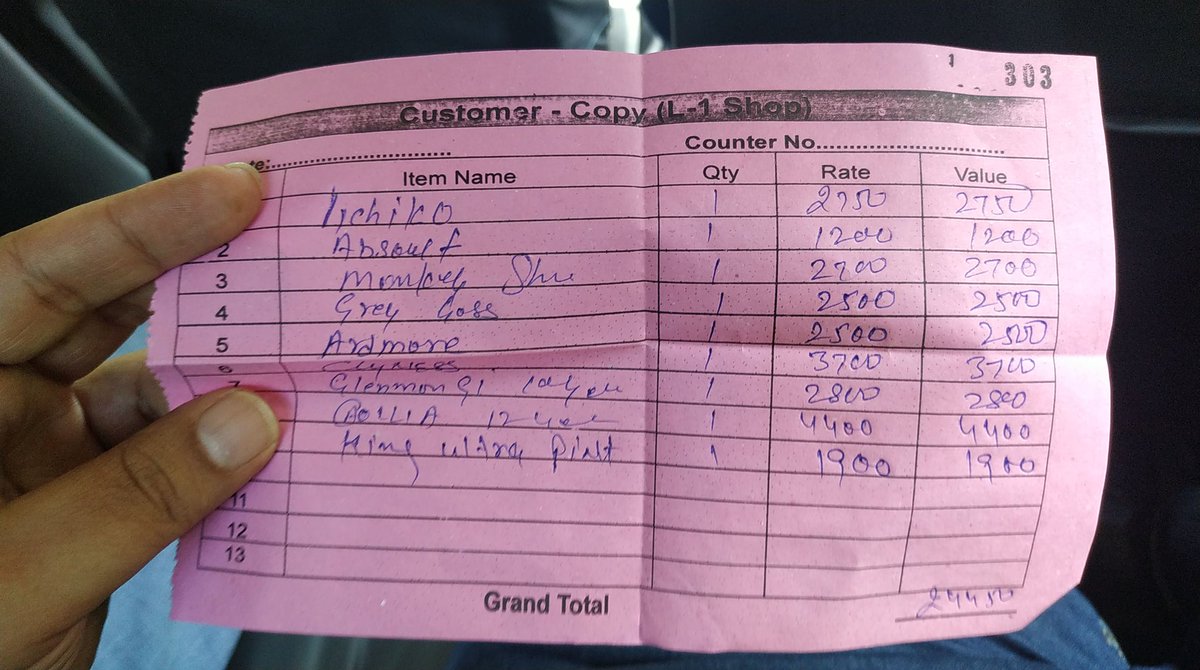 303
Customer - Copy (L-1 Shop)
te:
Counter No.
Item Name Qty Rate Value
Iichiko 1 2750 2750
2 Absoult 1 1200 1200
3 Monkey 1 2700 2700
4 Grey Goss 1 2500 2500
5 Ardmore 1 2500 2500
6 1 3700 3700
7 1 2800 2800
12 1 4400 4400
King ultra Pint 1 1900 1900
11
12
13
Grand Total 24450